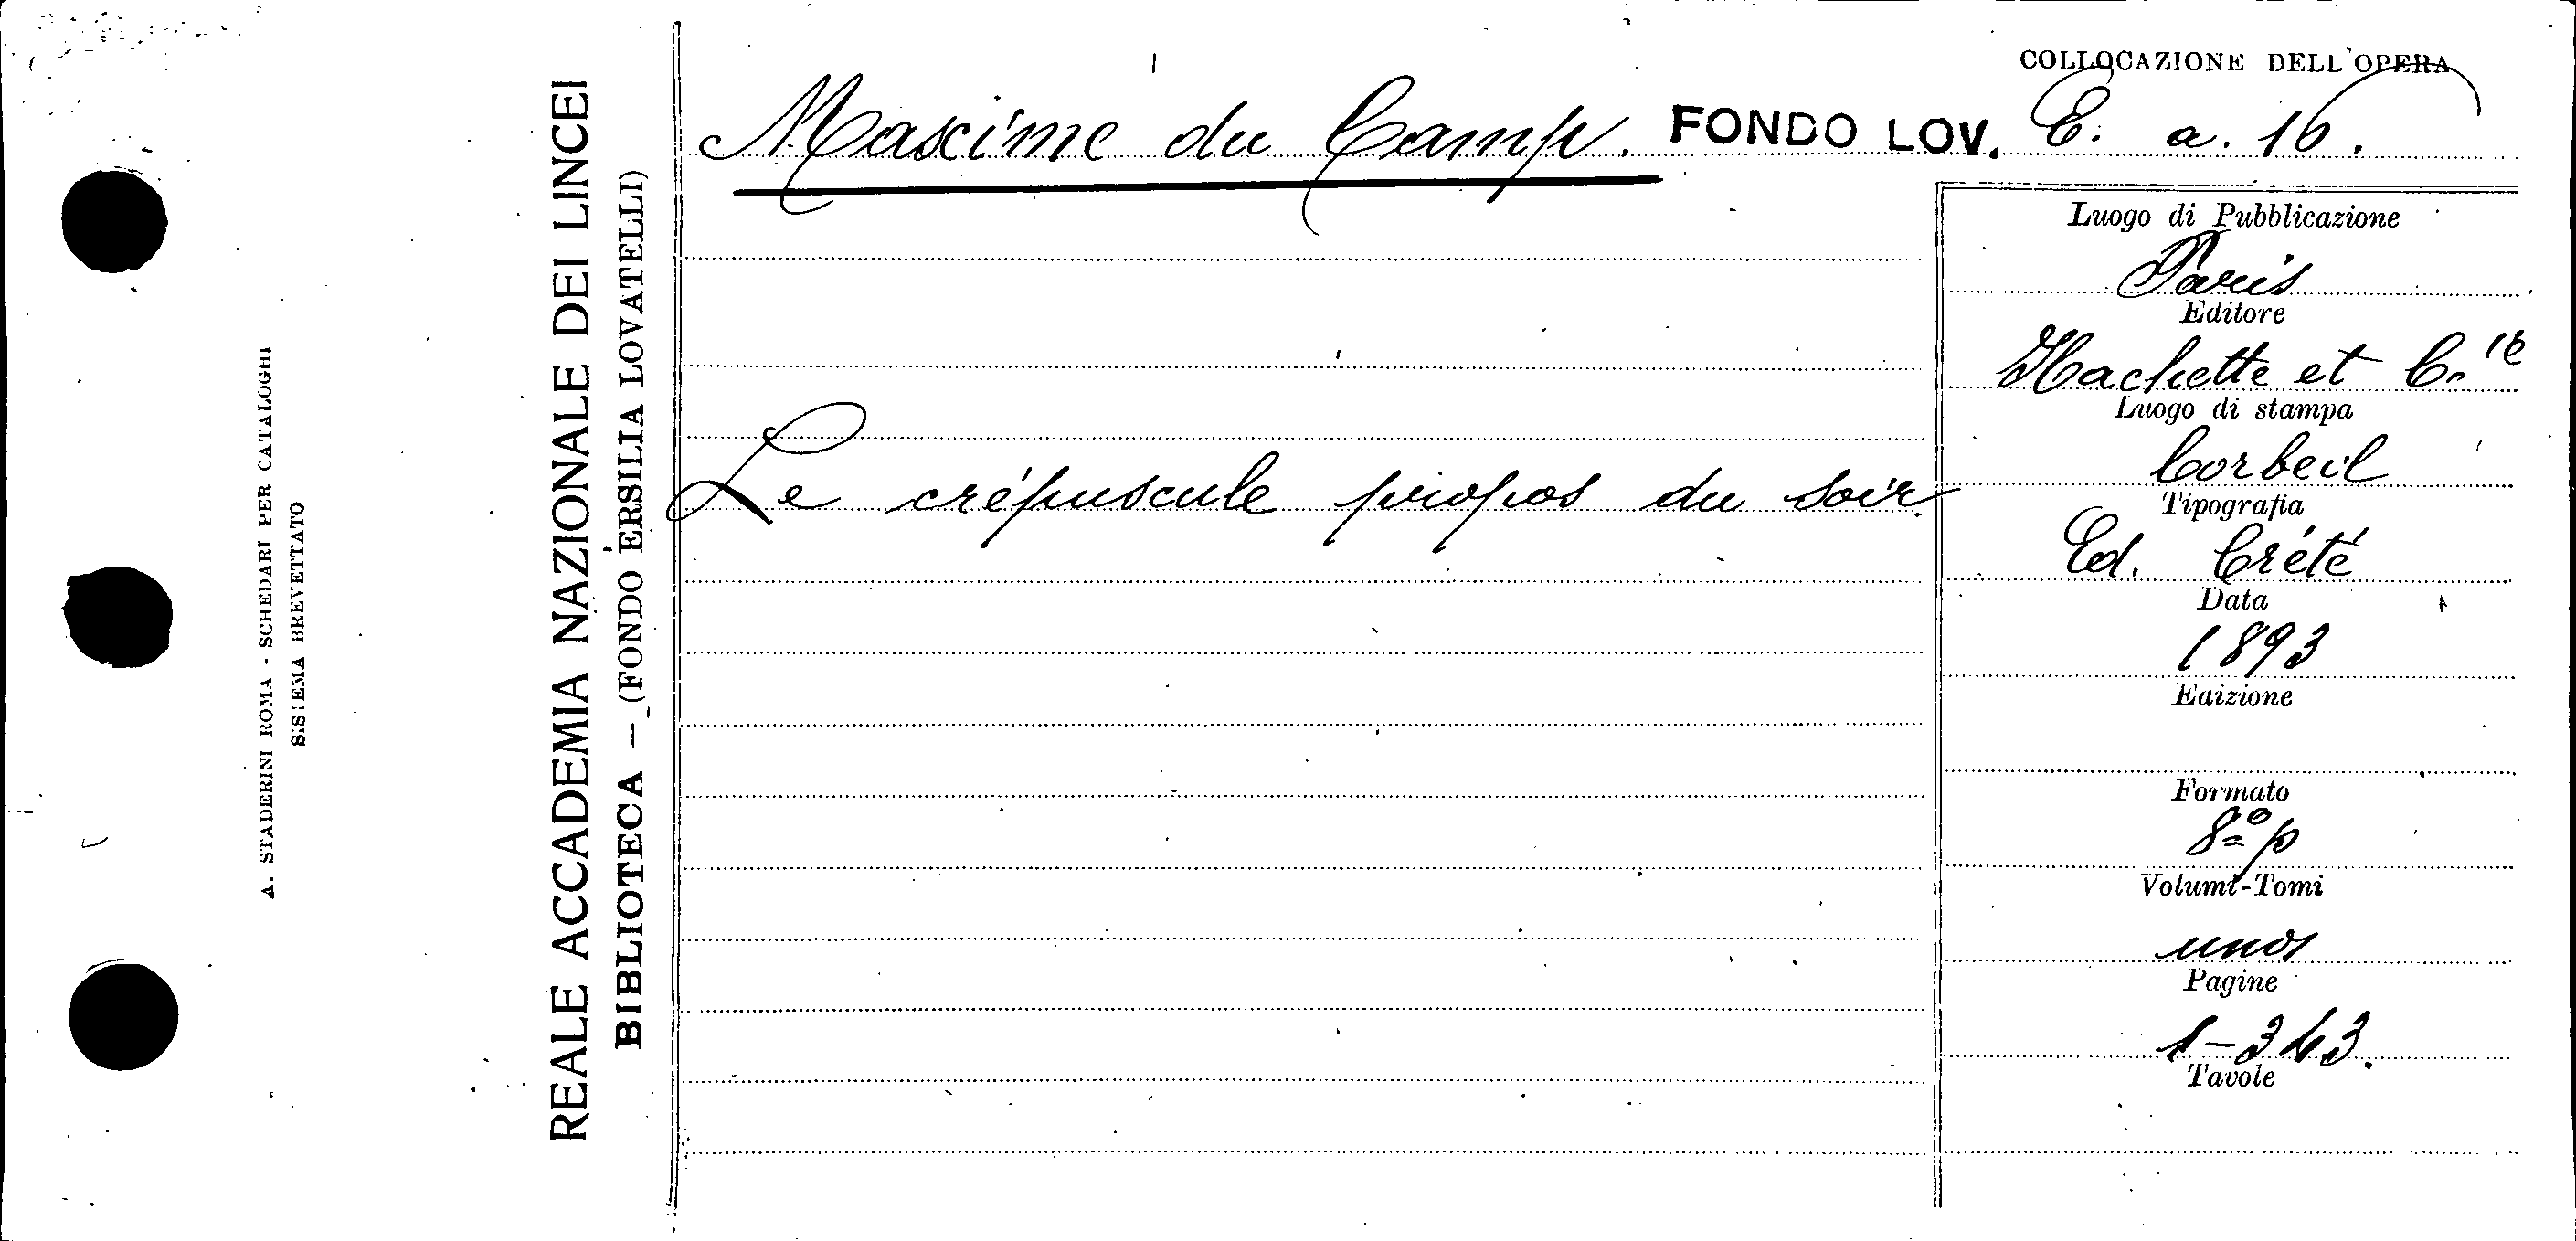 A. STADERINI ROMA - SCHEDARI PER CATALOGHI
SISTEMA BREVETTATO
REALE ACCADEMIA NAZIONALE DEI LINCEI
BIBLIOTECA — (FONDO ERSILIA LOVATELLI)
COLLOCAZIONE DELL'OPERA
Maxime du Camp. FONDO LOV. E. a. 16.
Le crépuscule propos du soir.
Luogo di Pubblicazione
Paris
Editore
Hachette et C.ie
Luogo di stampa
Corbeil
Tipografia
Ed. Crété
Data
1893
Edizione
Formato
8º p
Volumi-Tomi
uno
Pagine
1-343.
Tavole